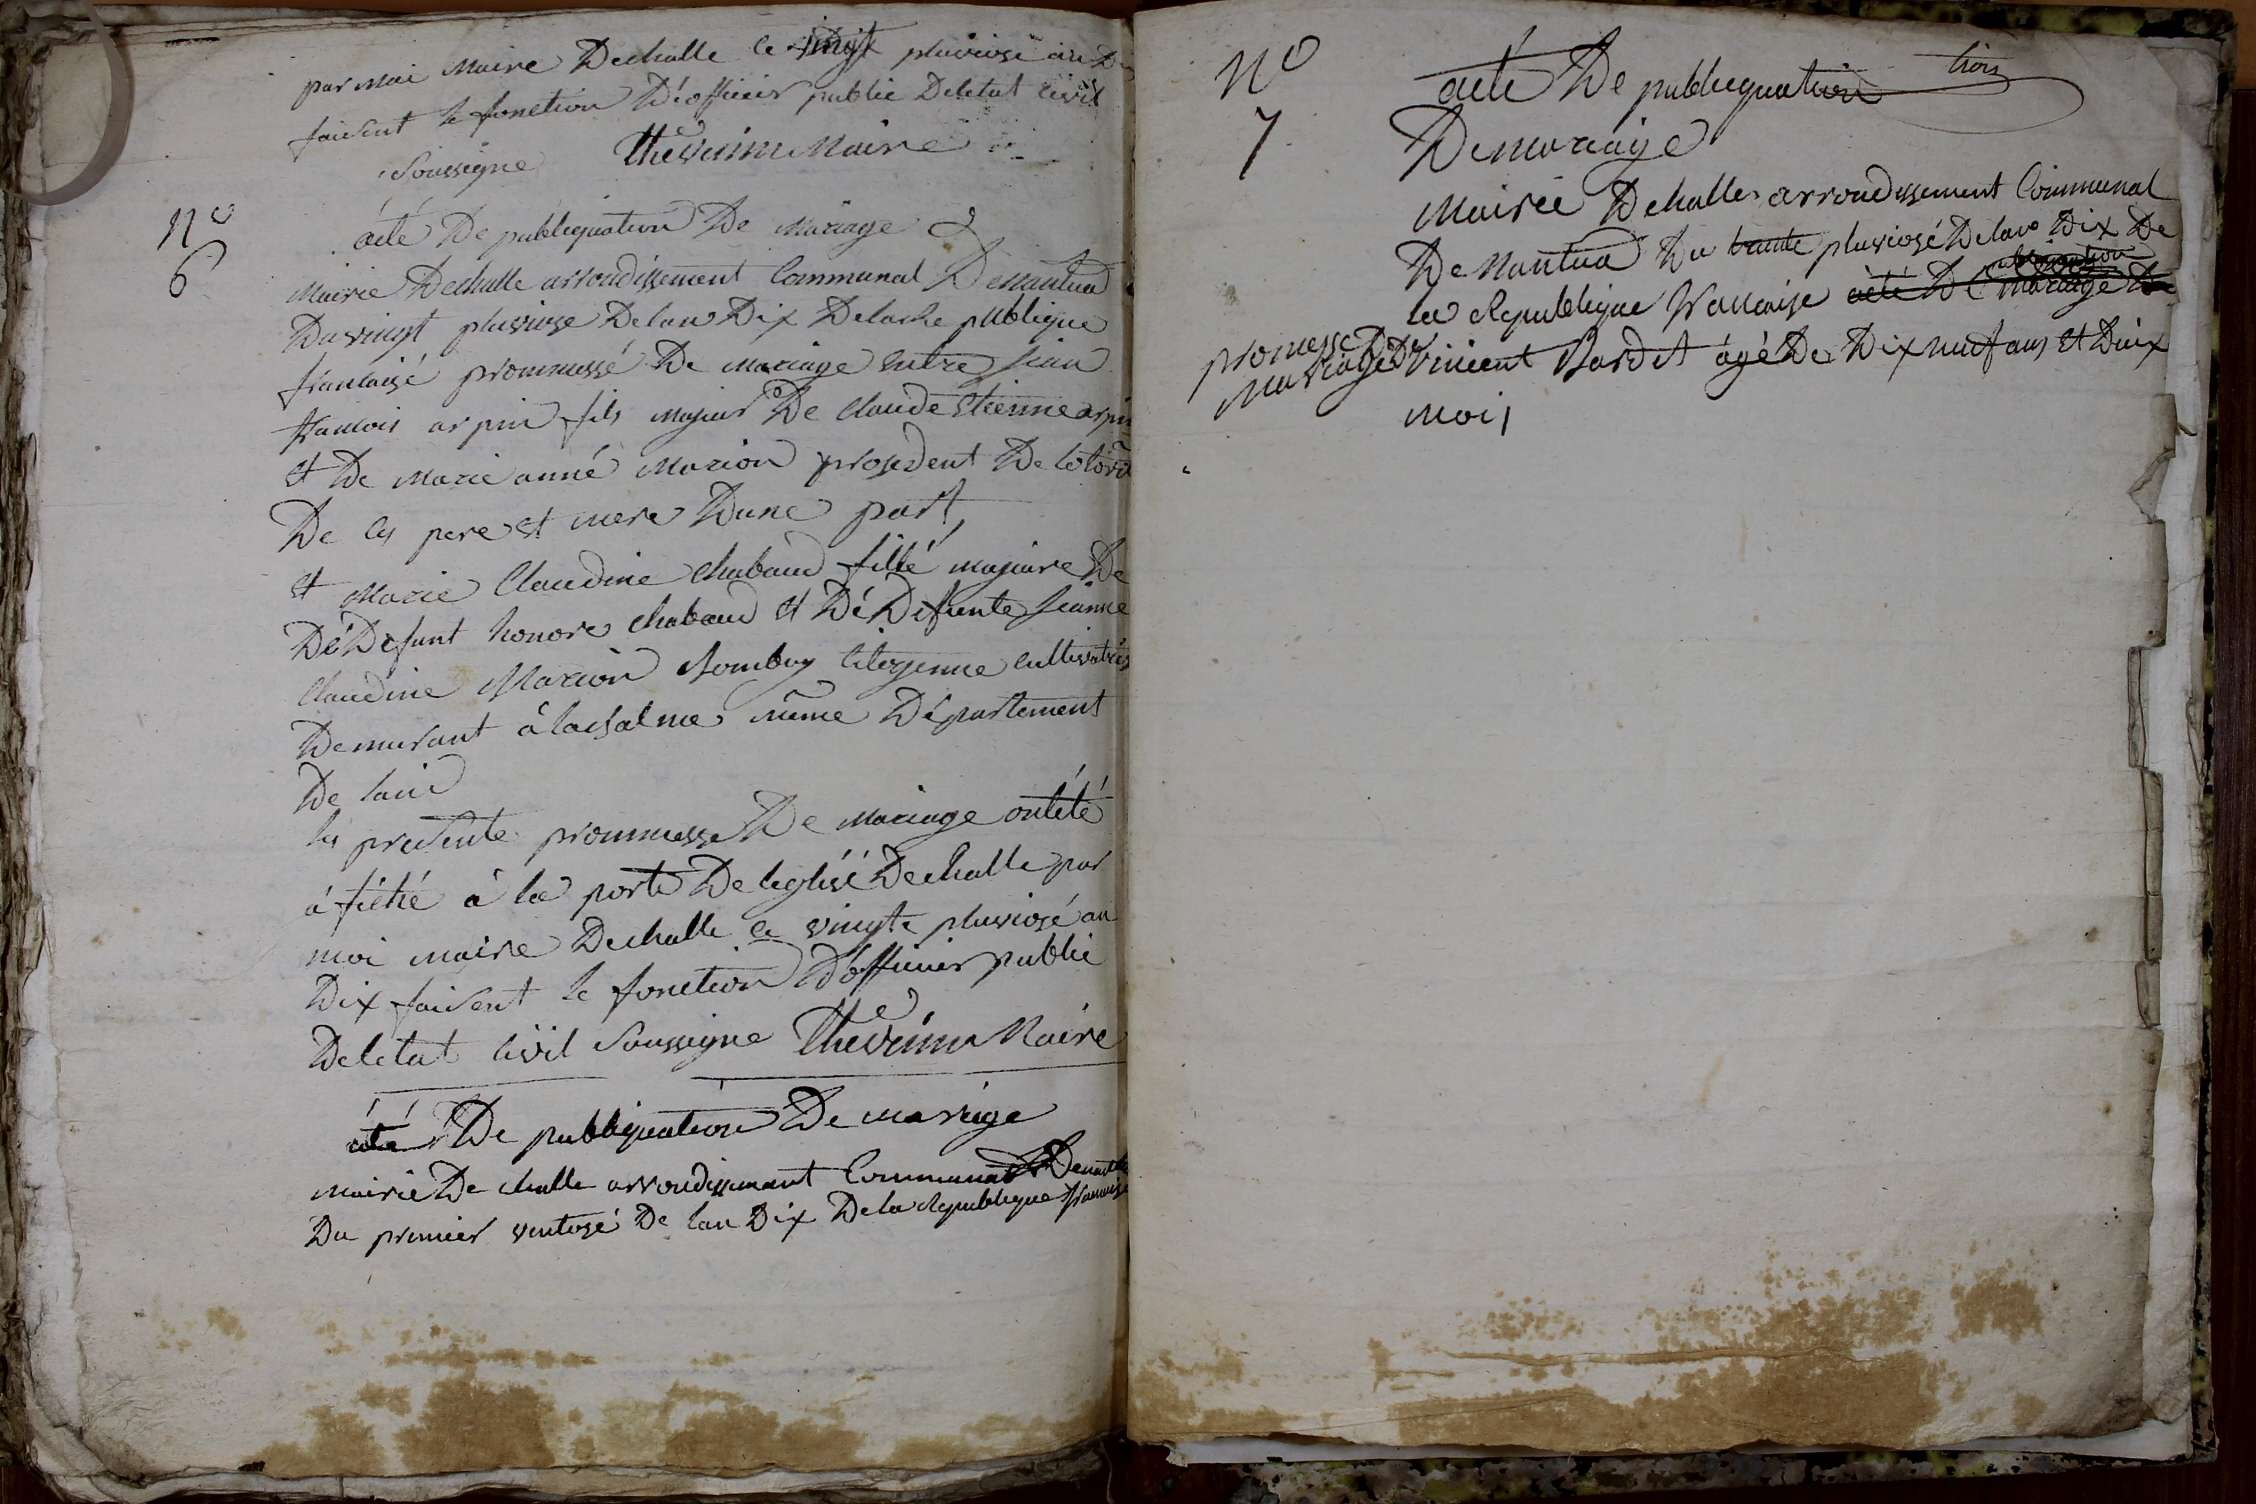 par moi Maire Dechalle ce vingt pluviose an
faisent le fonction Déofficier public Deletat civil
Soussigne Thevenin Maire
N°
6
acté De publiquation De Mariage
Mairie Dechalle arrondissement Communal Denantua
Du vingt pluviose Delan Dix DelaRe publique
francaisé prommessé De mariage entre jean
francois arpin fils majeur De Claude Etienne arpin
et De Marie anné Marion
De ces pere et mere Dune part
et Marie Claudine Chabaud fillé majeure De
DéDefunt honore Chabaud et DéDefunte jeanne
Claudine Marion citoyenne cultivatris
Demurant á même Département
De lain
la presente prommesse De Mariage ontété
á fiché á la porte De leglisé Dechalle par
moi maire Dechalle ce vingte pluviosé an
Dix faisent le fonction Dofficier public
Deletat civil Soussigne Thevenin Maire
acté De publiquation De mariage
mairie De challe arrondissemant Communal Denantua
Du premier ventosé De lan Dix Dela Republique francaise
trois
N°
7
acté De publiquation
Demariage
Mairie Dechalle arrondissement Communal
De Nantua Du trante pluviosé Delan Dix De
publiquation
la Republique francaise acté De mariage De
promesse De
mariage De
Vincent Bardet ágé De Dix neuf ans et Dix
mois